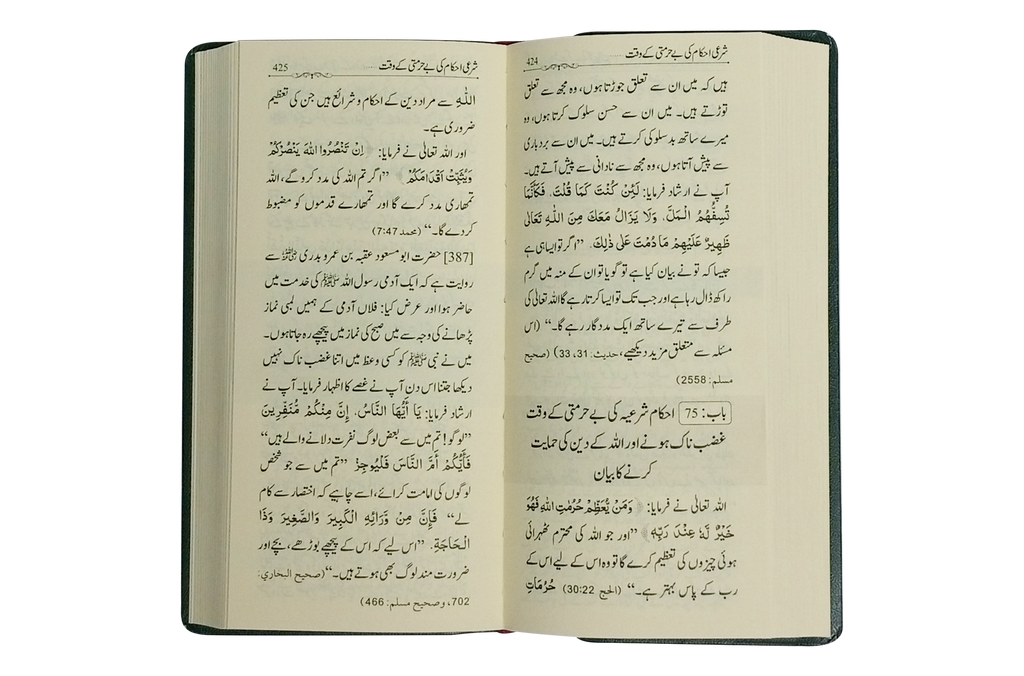 شرعی احکام کی بے حرمتی کے وقت 424
ہیں کہ میں ان سے تعلق جوڑتا ہوں، وہ مجھ سے تعلق
توڑتے ہیں۔ میں ان سے حسن سلوک کرتا ہوں، وہ
میرے ساتھ بدسلوکی کرتے ہیں۔ میں ان سے بردباری
سے پیش آتا ہوں، وہ مجھ سے نادانی سے پیش آتے ہیں۔
آپ نے ارشاد فرمایا: لَئِنْ كُنْتَ كَمَا قُلْتَ، فَكَأَنَّمَا
تُسِفُّهُمُ الْمَلَّ، وَلَا يَزَالُ مَعَكَ مِنَ اللّٰهِ تَعَالٰى
ظَهِيرٌ عَلَيْهِمْ مَا دُمْتَ عَلٰى ذٰلِكَ، ”اگر تو ایسا ہی ہے
جیسا کہ تو نے بیان کیا ہے تو گویا تو ان کے منہ میں گرم
راکھ ڈال رہا ہے اور جب تک تو ایسا کرتا رہے گا اللہ تعالیٰ کی
طرف سے تیرے ساتھ ایک مددگار رہے گا۔“ (اس
مسئلہ سے متعلق مزید دیکھیے، حدیث: 31، 33) (صحیح
مسلم: 2558)
باب: 75 احکام شرعیہ کی بے حرمتی کے وقت
غضب ناک ہونے اور اللہ کے دین کی حمایت
کرنے کا بیان
اللہ تعالیٰ نے فرمایا: ﴿وَمَنْ يُّعَظِّمْ حُرُمٰتِ اللّٰهِ فَهُوَ
خَيْرٌ لَّهٗ عِنْدَ رَبِّهٖ﴾ ”اور جو اللہ کی محترم ٹھہرائی
ہوئی چیزوں کی تعظیم کرے گا تو وہ اس کے لیے اس کے
رب کے پاس بہتر ہے۔“ (الحج 30:22) حُرُمَاتِ
شرعی احکام کی بے حرمتی کے وقت 425
اللّٰهِ سے مراد دین کے احکام و شرائع ہیں جن کی تعظیم
ضروری ہے۔
اور اللہ تعالیٰ نے فرمایا: ﴿اِنْ تَنْصُرُوا اللّٰهَ يَنْصُرْكُمْ
وَيُثَبِّتْ اَقْدَامَكُمْ﴾ ”اگر تم اللہ کی مدد کرو گے، اللہ
تمھاری مدد کرے گا اور تمھارے قدموں کو مضبوط
کر دے گا۔“ (محمد 7:47)
[387] حضرت ابو مسعود عقبہ بن عمرو بدری ؓ سے
روایت ہے کہ ایک آدمی رسول اللہ ﷺ کی خدمت میں
حاضر ہوا اور عرض کیا: فلاں آدمی کے ہمیں لمبی نماز
پڑھانے کی وجہ سے میں صبح کی نماز میں پیچھے رہ جاتا ہوں۔
میں نے نبی ﷺ کو کسی وعظ میں اتنا غضب ناک نہیں
دیکھا جتنا اس دن آپ نے غصے کا اظہار فرمایا۔ آپ نے
ارشاد فرمایا: يَا أَيُّهَا النَّاسُ، إِنَّ مِنْكُمْ مُنَفِّرِينَ
”لوگو! تم میں سے بعض لوگ نفرت دلانے والے ہیں“
فَأَيُّكُمْ أَمَّ النَّاسَ فَلْيُوجِزْ ”تم میں سے جو شخص
لوگوں کی امامت کرائے، اسے چاہیے کہ اختصار سے کام
لے“ فَإِنَّ مِنْ وَرَائِهِ الْكَبِيرَ وَالصَّغِيرَ وَذَا
الْحَاجَةِ، ”اس لیے کہ اس کے پیچھے بوڑھے، بچے اور
ضرورت مند لوگ بھی ہوتے ہیں۔“ (صحیح البخاري:
702، وصحیح مسلم: 466)